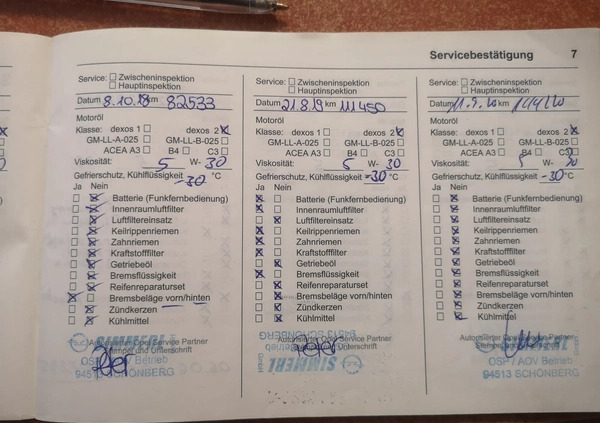 Servicebestätigung 7
Service: Zwischeninspektion
Hauptinspektion
Datum 8.10.18 km 82533
Motoröl
Klasse: dexos 1 dexos 2
GM-LL-A-025 GM-LL-B-025
ACEA A3 B4 C3
Viskosität: 5 W- 30
Gefrierschutz, Kühlflüssigkeit -30 °C
Ja Nein
Batterie (Funkfernbedienung)
Innenraumluftfilter
Luftfiltereinsatz
Keilrippenriemen
Zahnriemen
Kraftstofffilter
Getriebeöl
Bremsflüssigkeit
Reifenreparaturset
Bremsbeläge vorn/hinten
Zündkerzen
Kühlmittel
Autorisierter Opel Service Partner
Stempel und Unterschrift
OSP / AOV Betrieb
94513 SCHÖNBERG
Service: Zwischeninspektion
Hauptinspektion
Datum 21.8.19 km 111450
Motoröl
Klasse: dexos 1 dexos 2
GM-LL-A-025 GM-LL-B-025
ACEA A3 B4 C3
Viskosität: 5 W- 30
Gefrierschutz, Kühlflüssigkeit -30 °C
Ja Nein
Batterie (Funkfernbedienung)
Innenraumluftfilter
Luftfiltereinsatz
Keilrippenriemen
Zahnriemen
Kraftstofffilter
Getriebeöl
Bremsflüssigkeit
Reifenreparaturset
Bremsbeläge vorn/hinten
Zündkerzen
Kühlmittel
Autorisierter Opel Service Partner
Unterschrift
94513 SCHÖNBERG
SIMMERL
GmbH
Service: Zwischeninspektion
Hauptinspektion
Datum 11.9.20 km
Motoröl
Klasse: dexos 1 dexos 2
GM-LL-A-025 GM-LL-B-025
ACEA A3 B4 C3
Viskosität: 5 W- 30
Gefrierschutz, Kühlflüssigkeit -30 °C
Ja Nein
Batterie (Funkfernbedienung)
Innenraumluftfilter
Luftfiltereinsatz
Keilrippenriemen
Zahnriemen
Kraftstofffilter
Getriebeöl
Bremsflüssigkeit
Reifenreparaturset
Bremsbeläge vorn/hinten
Zündkerzen
Kühlmittel
Autorisierter Opel Service Partner
OSP / AOV Betrieb
94513 SCHÖNBERG